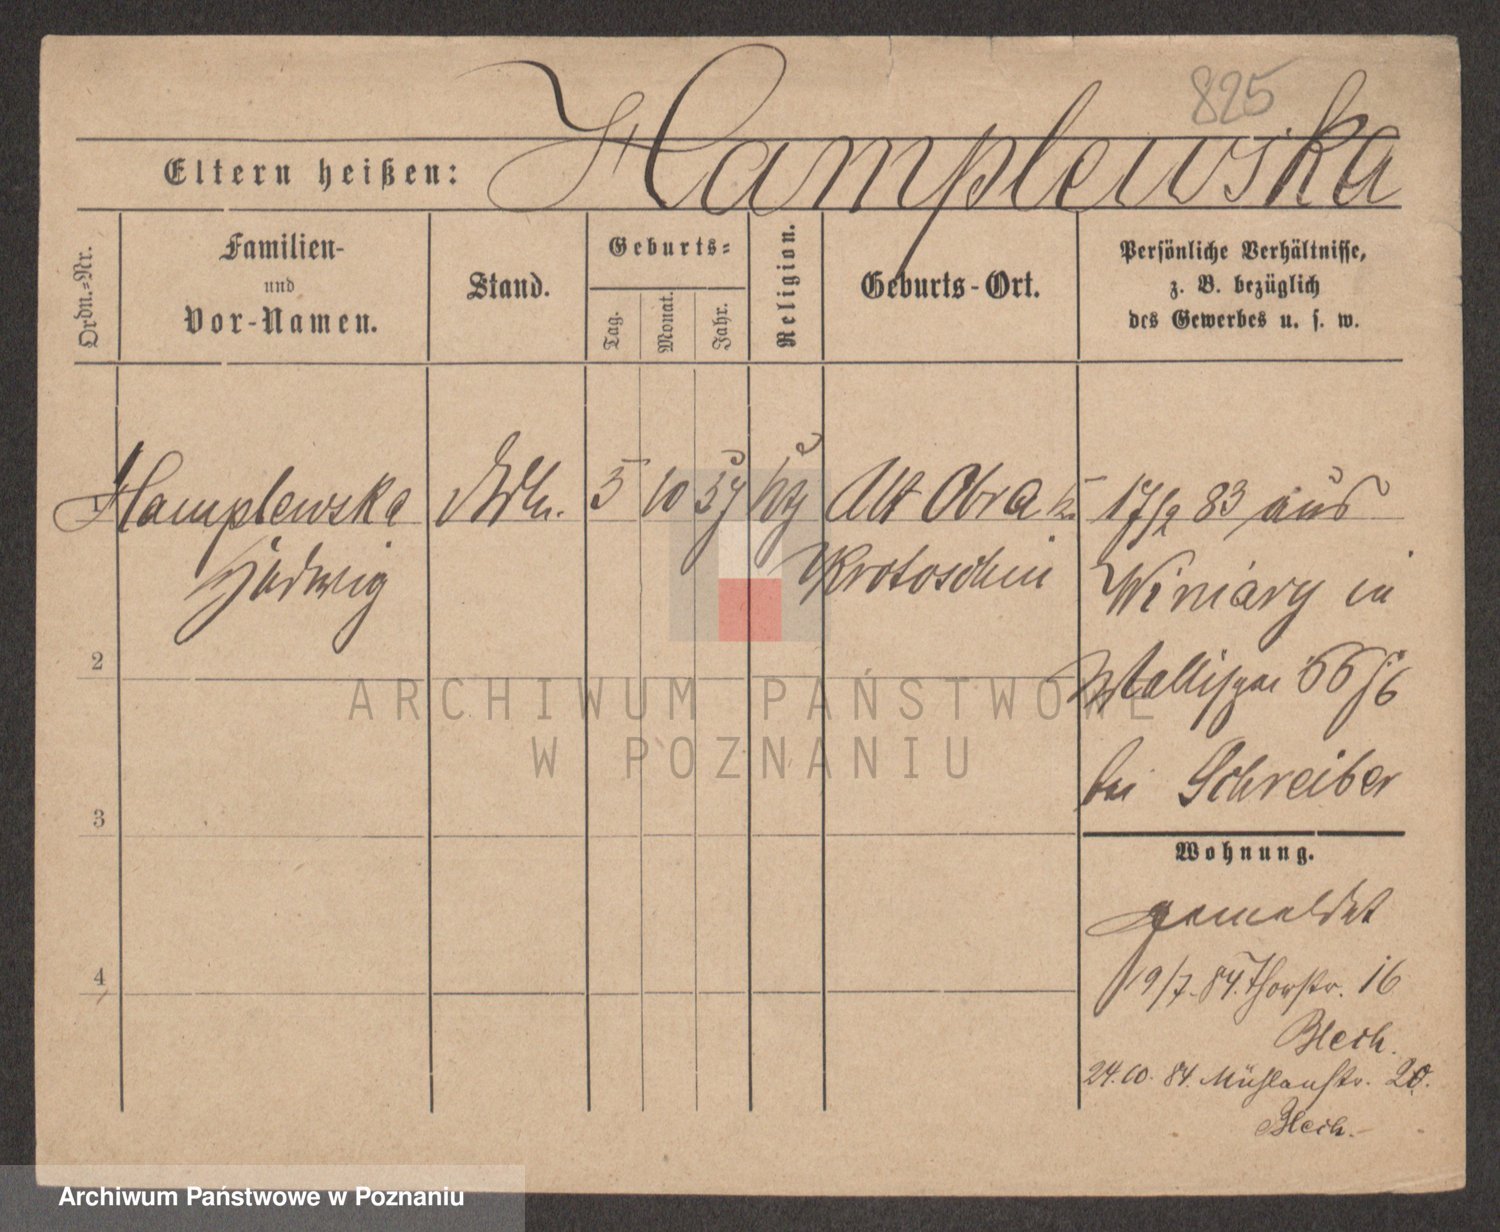 825
Hamplewska
Eltern heißen:
Ordn.-Nr.
Familien-
und
Vor-Namen.
Stand.
Geburts-
Tag.
Monat.
Jahr.
Religion.
Geburts-Ort.
Persönliche Verhältnisse,
z. B. bezüglich
des Gewerbes u. s. w.
Hamplewska
Hedwig
5 10 57
Alt Obra
Krotoschin
17/2 83 aus
Winiary in
Wallischei 55/56
bei Schreiber
2
3
4
Wohnung.
gemeldet
19/7. 84. Thorstr. 16
Blech.
24.10. 84. Mühlenstr. 20.
Blech.
ARCHIWUM PAŃSTWOWE
W POZNANIU
Archiwum Państwowe w Poznaniu